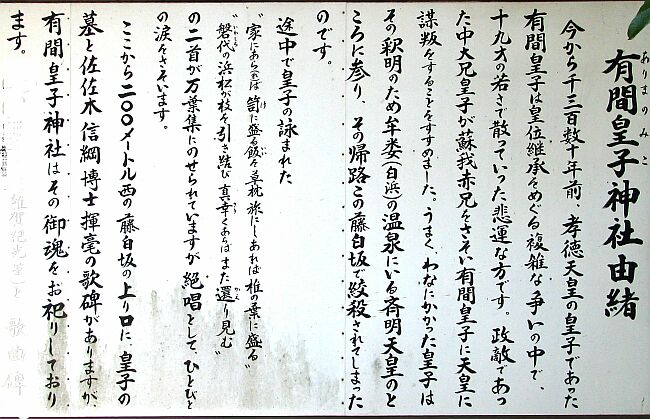 有間皇子神社由緒
ありまのみこ
今から千三百数十年前、孝徳天皇の皇子であった
有間皇子は皇位継承をめぐる複雑な争いの中で、
十九才の若さで散っていった悲運な方です。政敵であっ
た中大兄皇子が蘇我赤兄をさそい有間皇子に天皇に
謀叛をすることをすすめました。うまく、わなにかかった皇子は
その釈明のため牟婁(白浜)の温泉にいる斉明天皇のと
ころに参り、その帰路この藤白坂で絞殺されてしまった
のです。
途中で皇子の詠まれた
"家にあらば笥に盛る飯を草枕旅にしあれば椎の葉に盛る"
"磐代の浜松が枝を引き結び真幸くあらばまた還り見む"
の二首が万葉集にのせられていますが絶唱として、ひとびと
の涙をさそいます。
ここから二〇〇メートル西の藤白坂の上り口に、皇子の
墓と佐佐木信綱博士揮毫の歌碑がありますが、
有間皇子神社はその御魂をお祀りしており
ます。